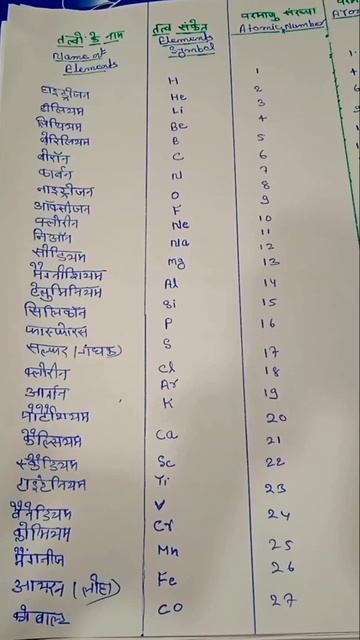 तत्वों के नाम तत्व संकेत परमाणु संख्या
Name of Elements Atomic Number
Elements Symbol
हाइड्रोजन H 1
हीलियम He 2
लिथियम Li 3
बेरिलियम Be 4
बोरॉन B 5
कार्बन C 6
नाइट्रोजन N 7
ऑक्सीजन O 8
फ्लोरीन F 9
निऑन Ne 10
सोडियम Na 11
मैग्नीशियम Mg 12
ऐलुमिनियम Al 13
सिलिकॉन Si 14
फास्फोरस P 15
सल्फर (गंधक) S 16
क्लोरीन Cl 17
आर्गन Ar 18
पोटैशियम K 19
कैल्सियम Ca 20
स्कैंडियम Sc 21
टाइटेनियम Ti 22
वैनेडियम V 23
क्रोमियम Cr 24
मैंगनीज Mn 25
आयरन (लोहा) Fe 26
कोबाल्ट CO 27